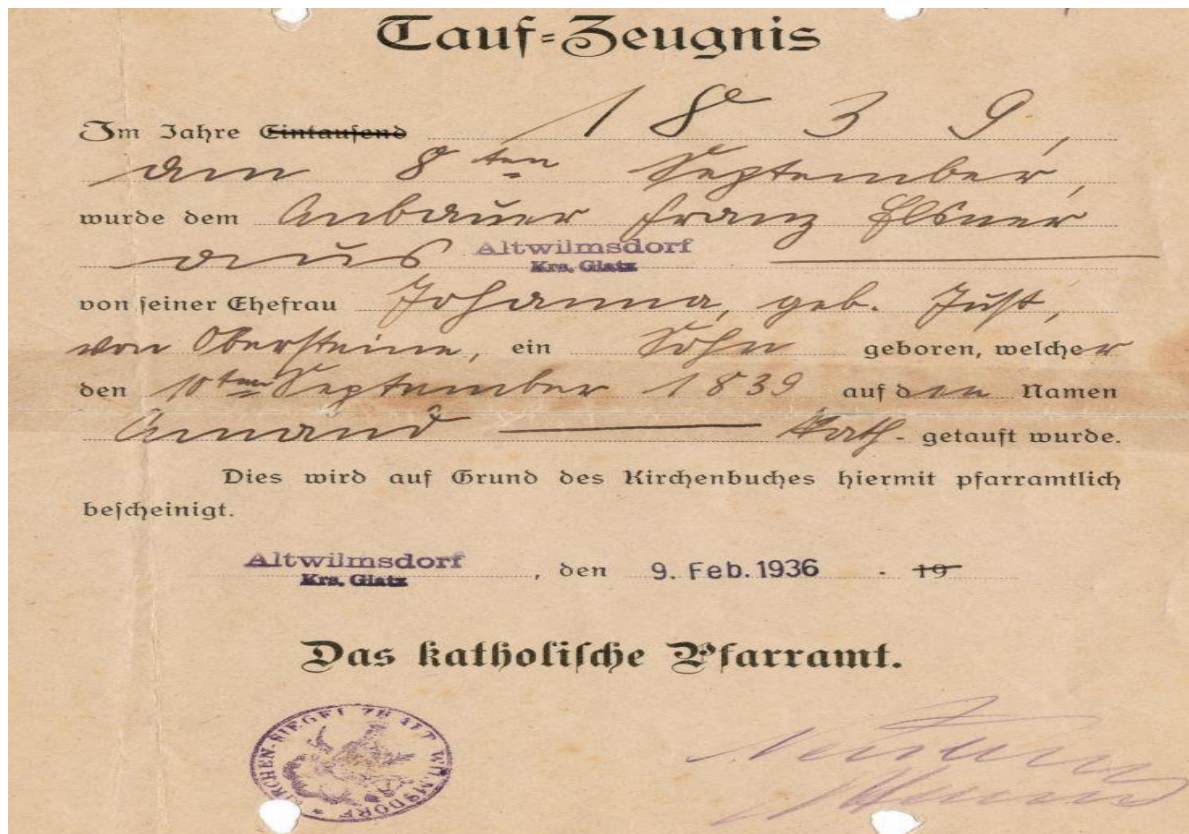 Tauf=Zeugnis
Im Jahre Eintausend 1839,
am 8ten September,
wurde dem Anbauer Franz Elsner
aus Altwilmsdorf
Krs. Glatz
von seiner Ehefrau Johanna, geb. Just,
von Obersteine, ein Sohn geboren, welcher
den 10ten September 1839 auf den Namen
Amand kath. getauft wurde.
Dies wird auf Grund des Kirchenbuches hiermit pfarramtlich
bescheinigt.
Altwilmsdorf
Krs. Glatz , den 9. Feb. 1936 . 19
Das katholische Pfarramt.
KIRCHEN-SIEGEL ZU ALT WILMSDORF